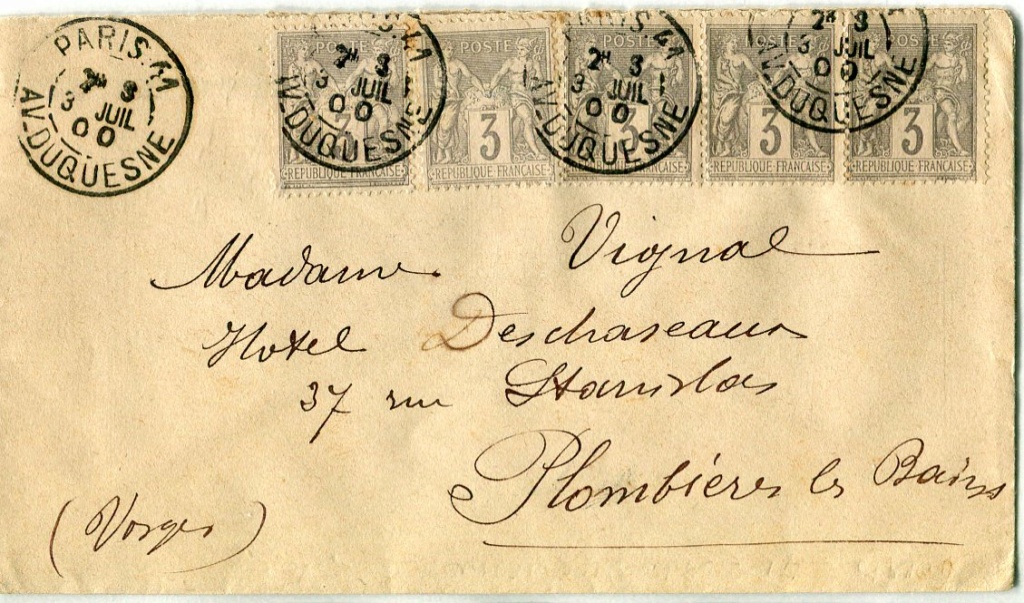 PARIS.41
2ᴱ 3
3 JUIL
00
AV.DUQUESNE
PARIS.41
2ᴱ 3
3 JUIL
00
AV.DUQUESNE
41
2ᴱ 3
3 JUIL
00
AV.DUQUESNE
2ᴱ 3
3 JUIL
00
AV.DUQUESNE
POSTE POSTE POSTE POSTE POSTE
3 3 3 3 3
REPUBLIQUE FRANÇAISE REPUBLIQUE FRANÇAISE REPUBLIQUE FRANÇAISE REPUBLIQUE FRANÇAISE REPUBLIQUE FRANÇAISE
Madame Vignal
Hotel Deschaseaux
37 rue Stanislas
Plombières les Bains
(Vosges)